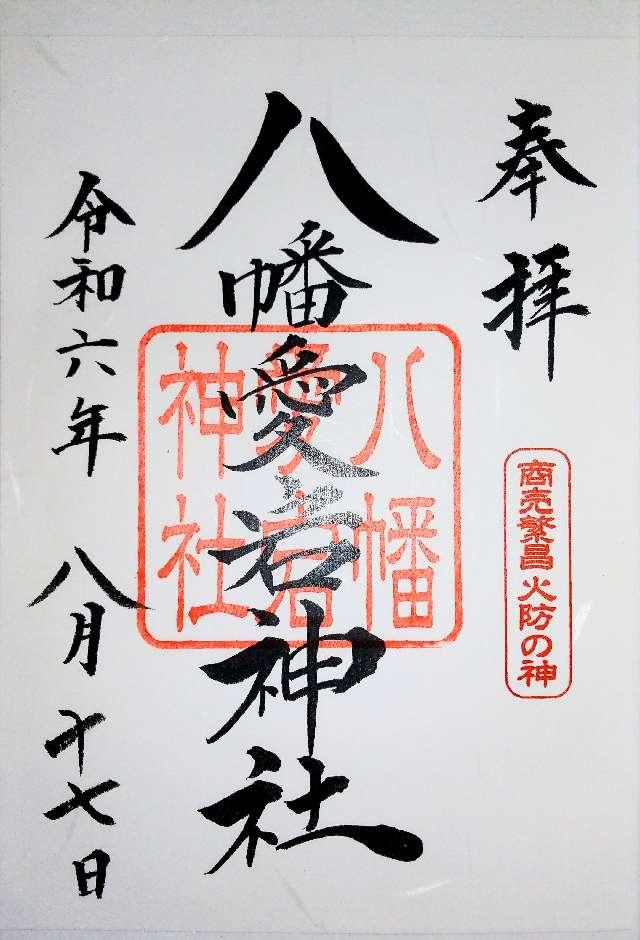 奉拝
商売繁昌 火防の神
八幡愛宕神社
八幡
愛宕
神社
令和六年 八月 十七日